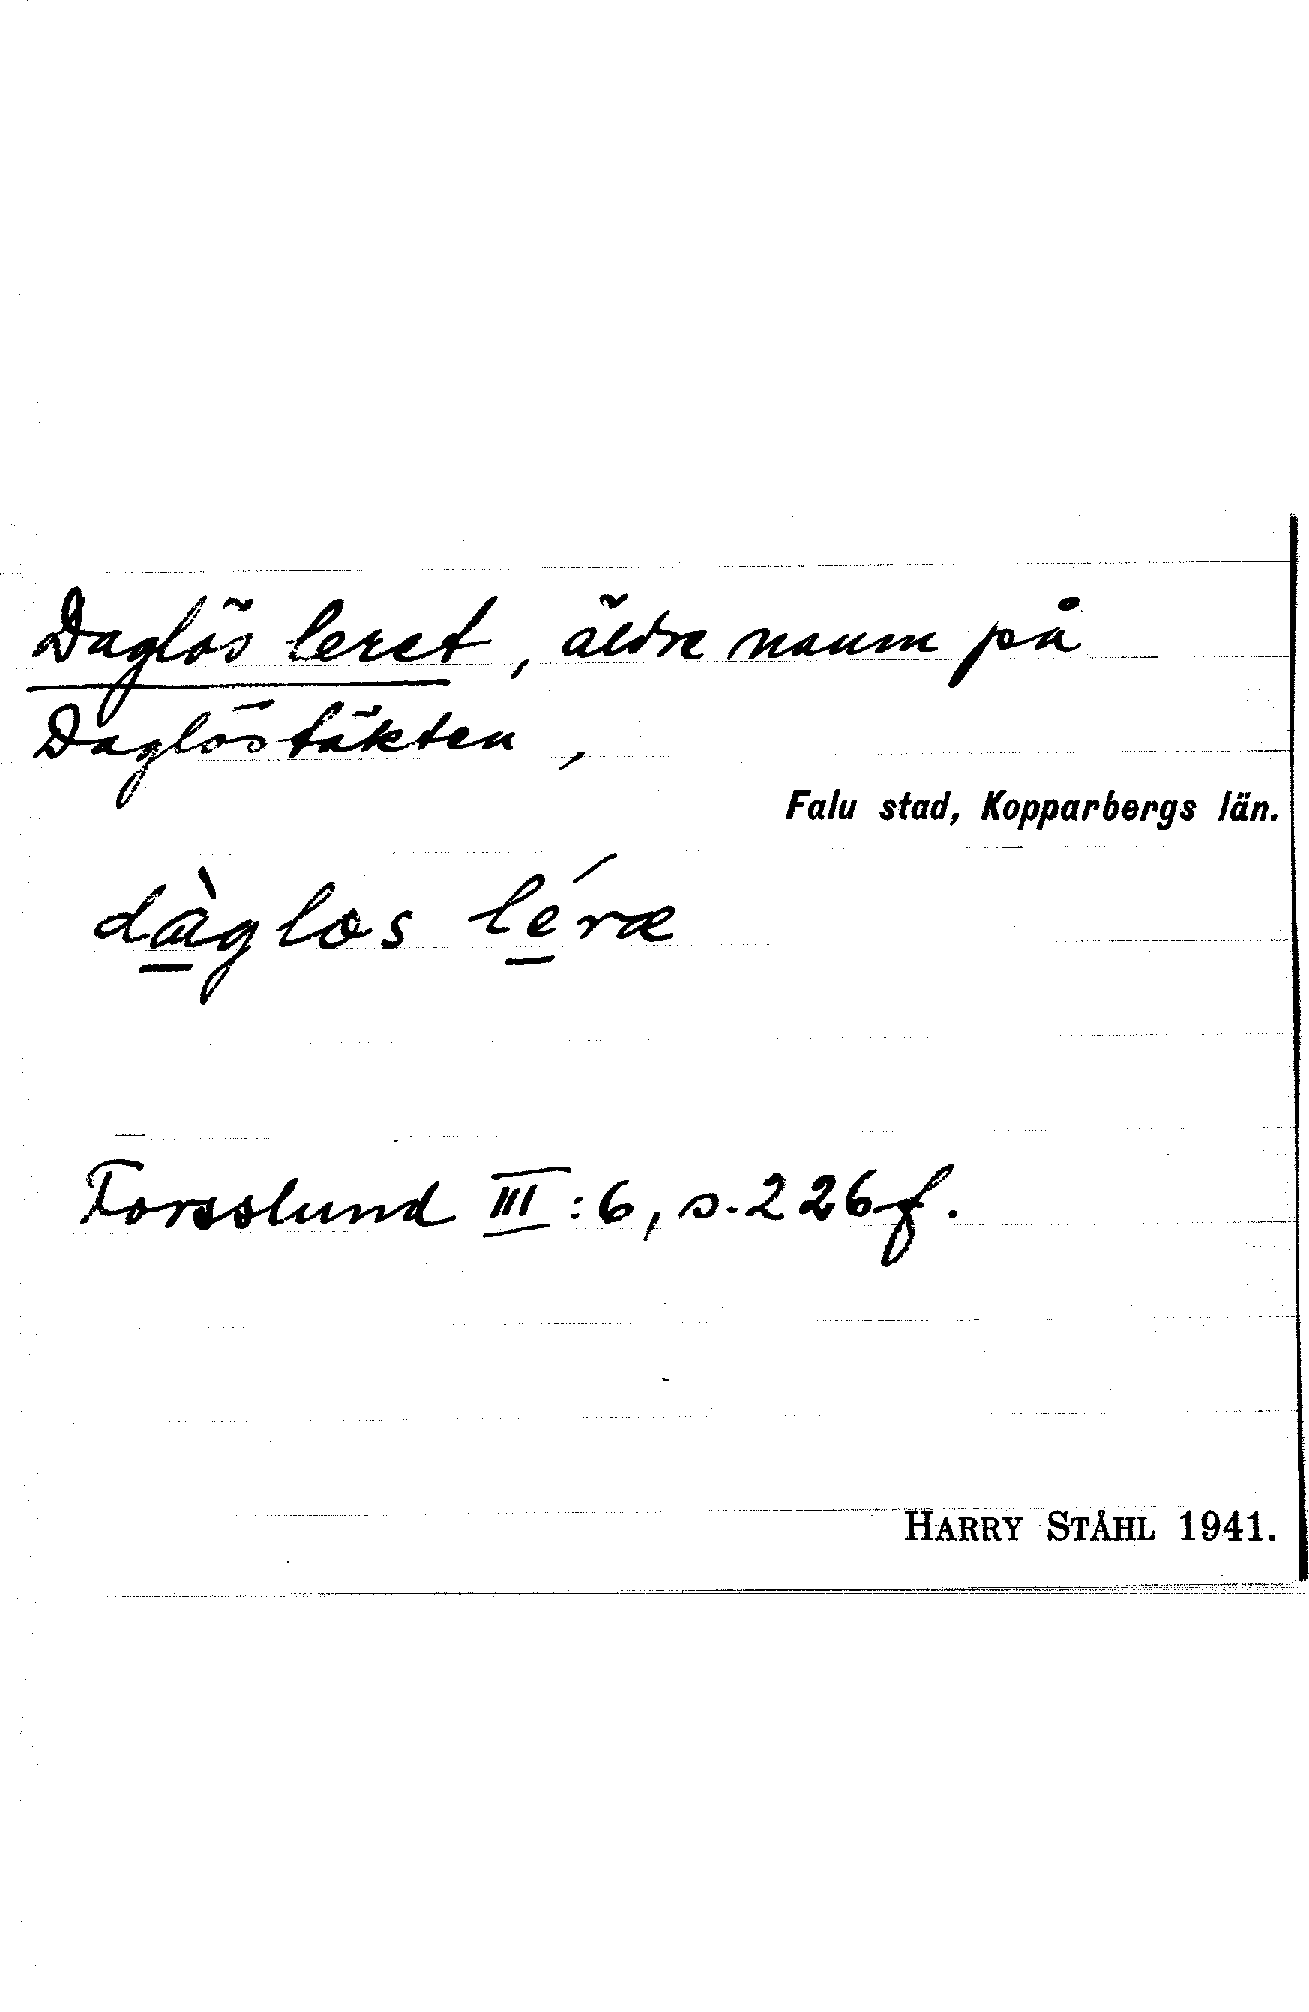 Daglös leret, äldre namn på
Daglöstäkten,
Falu stad, Kopparbergs län.
dàglos léræ
Forsslund III:6, s. 226 f.
HARRY STÅHL 1941.